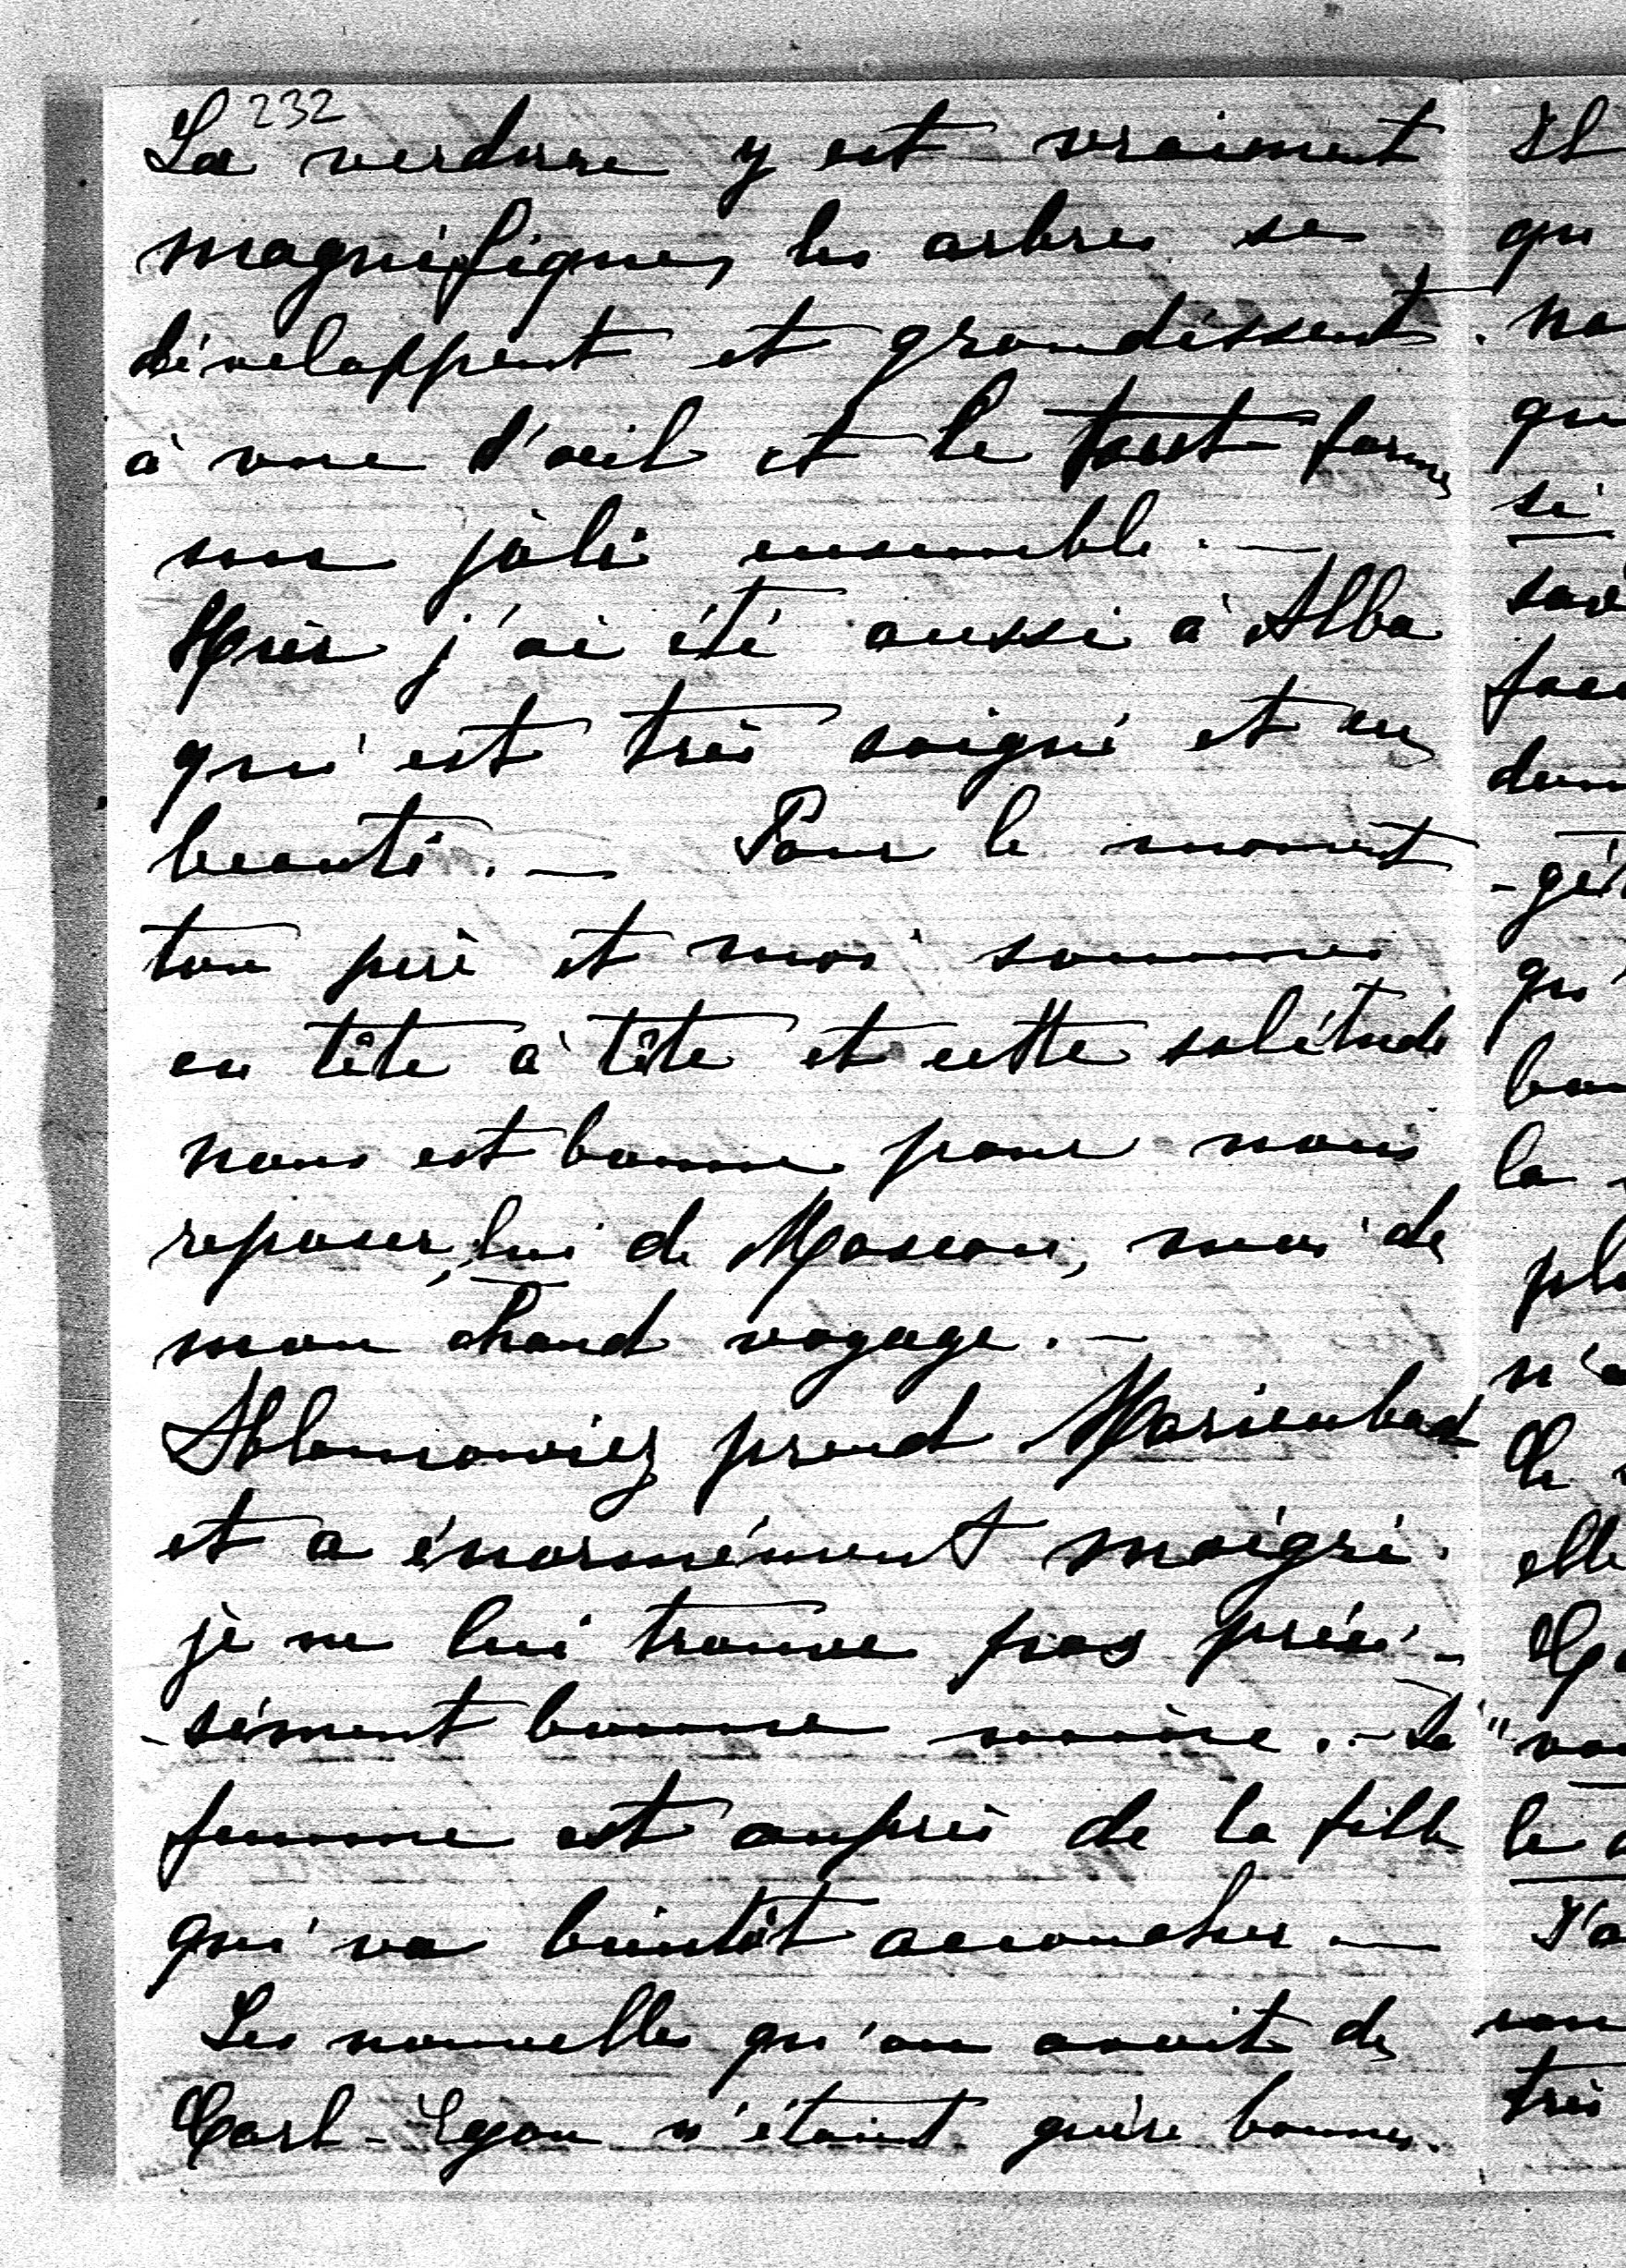 232
La verdure y est vraiment
magnifique, les arbres se
développent et grandissent
à vue d'œil et le tout forme
un joli ensemble. —
Hier j'ai été aussi à Alba
qui est très soigné et en
beauté. — Pour le moment
ton père et moi sommes
en tête à tête et cette solitude
nous est bonne pour nous
reposer, lui de Moscou, moi de
mon chaud voyage. —
prend Marienbad
et a énormément maigri.
je ne lui trouve pas préci-
-sément bonne mine. - Sa
femme est auprès de la fille
qui va bientôt accoucher —
Les nouvelles qu'on avait de
Carl-Egon n'étaient guère bonnes.
Il
qu
no
qu
si
sav
dem
qu'
bon
la
plu
n'a
elle
"vou
le
J'a
très